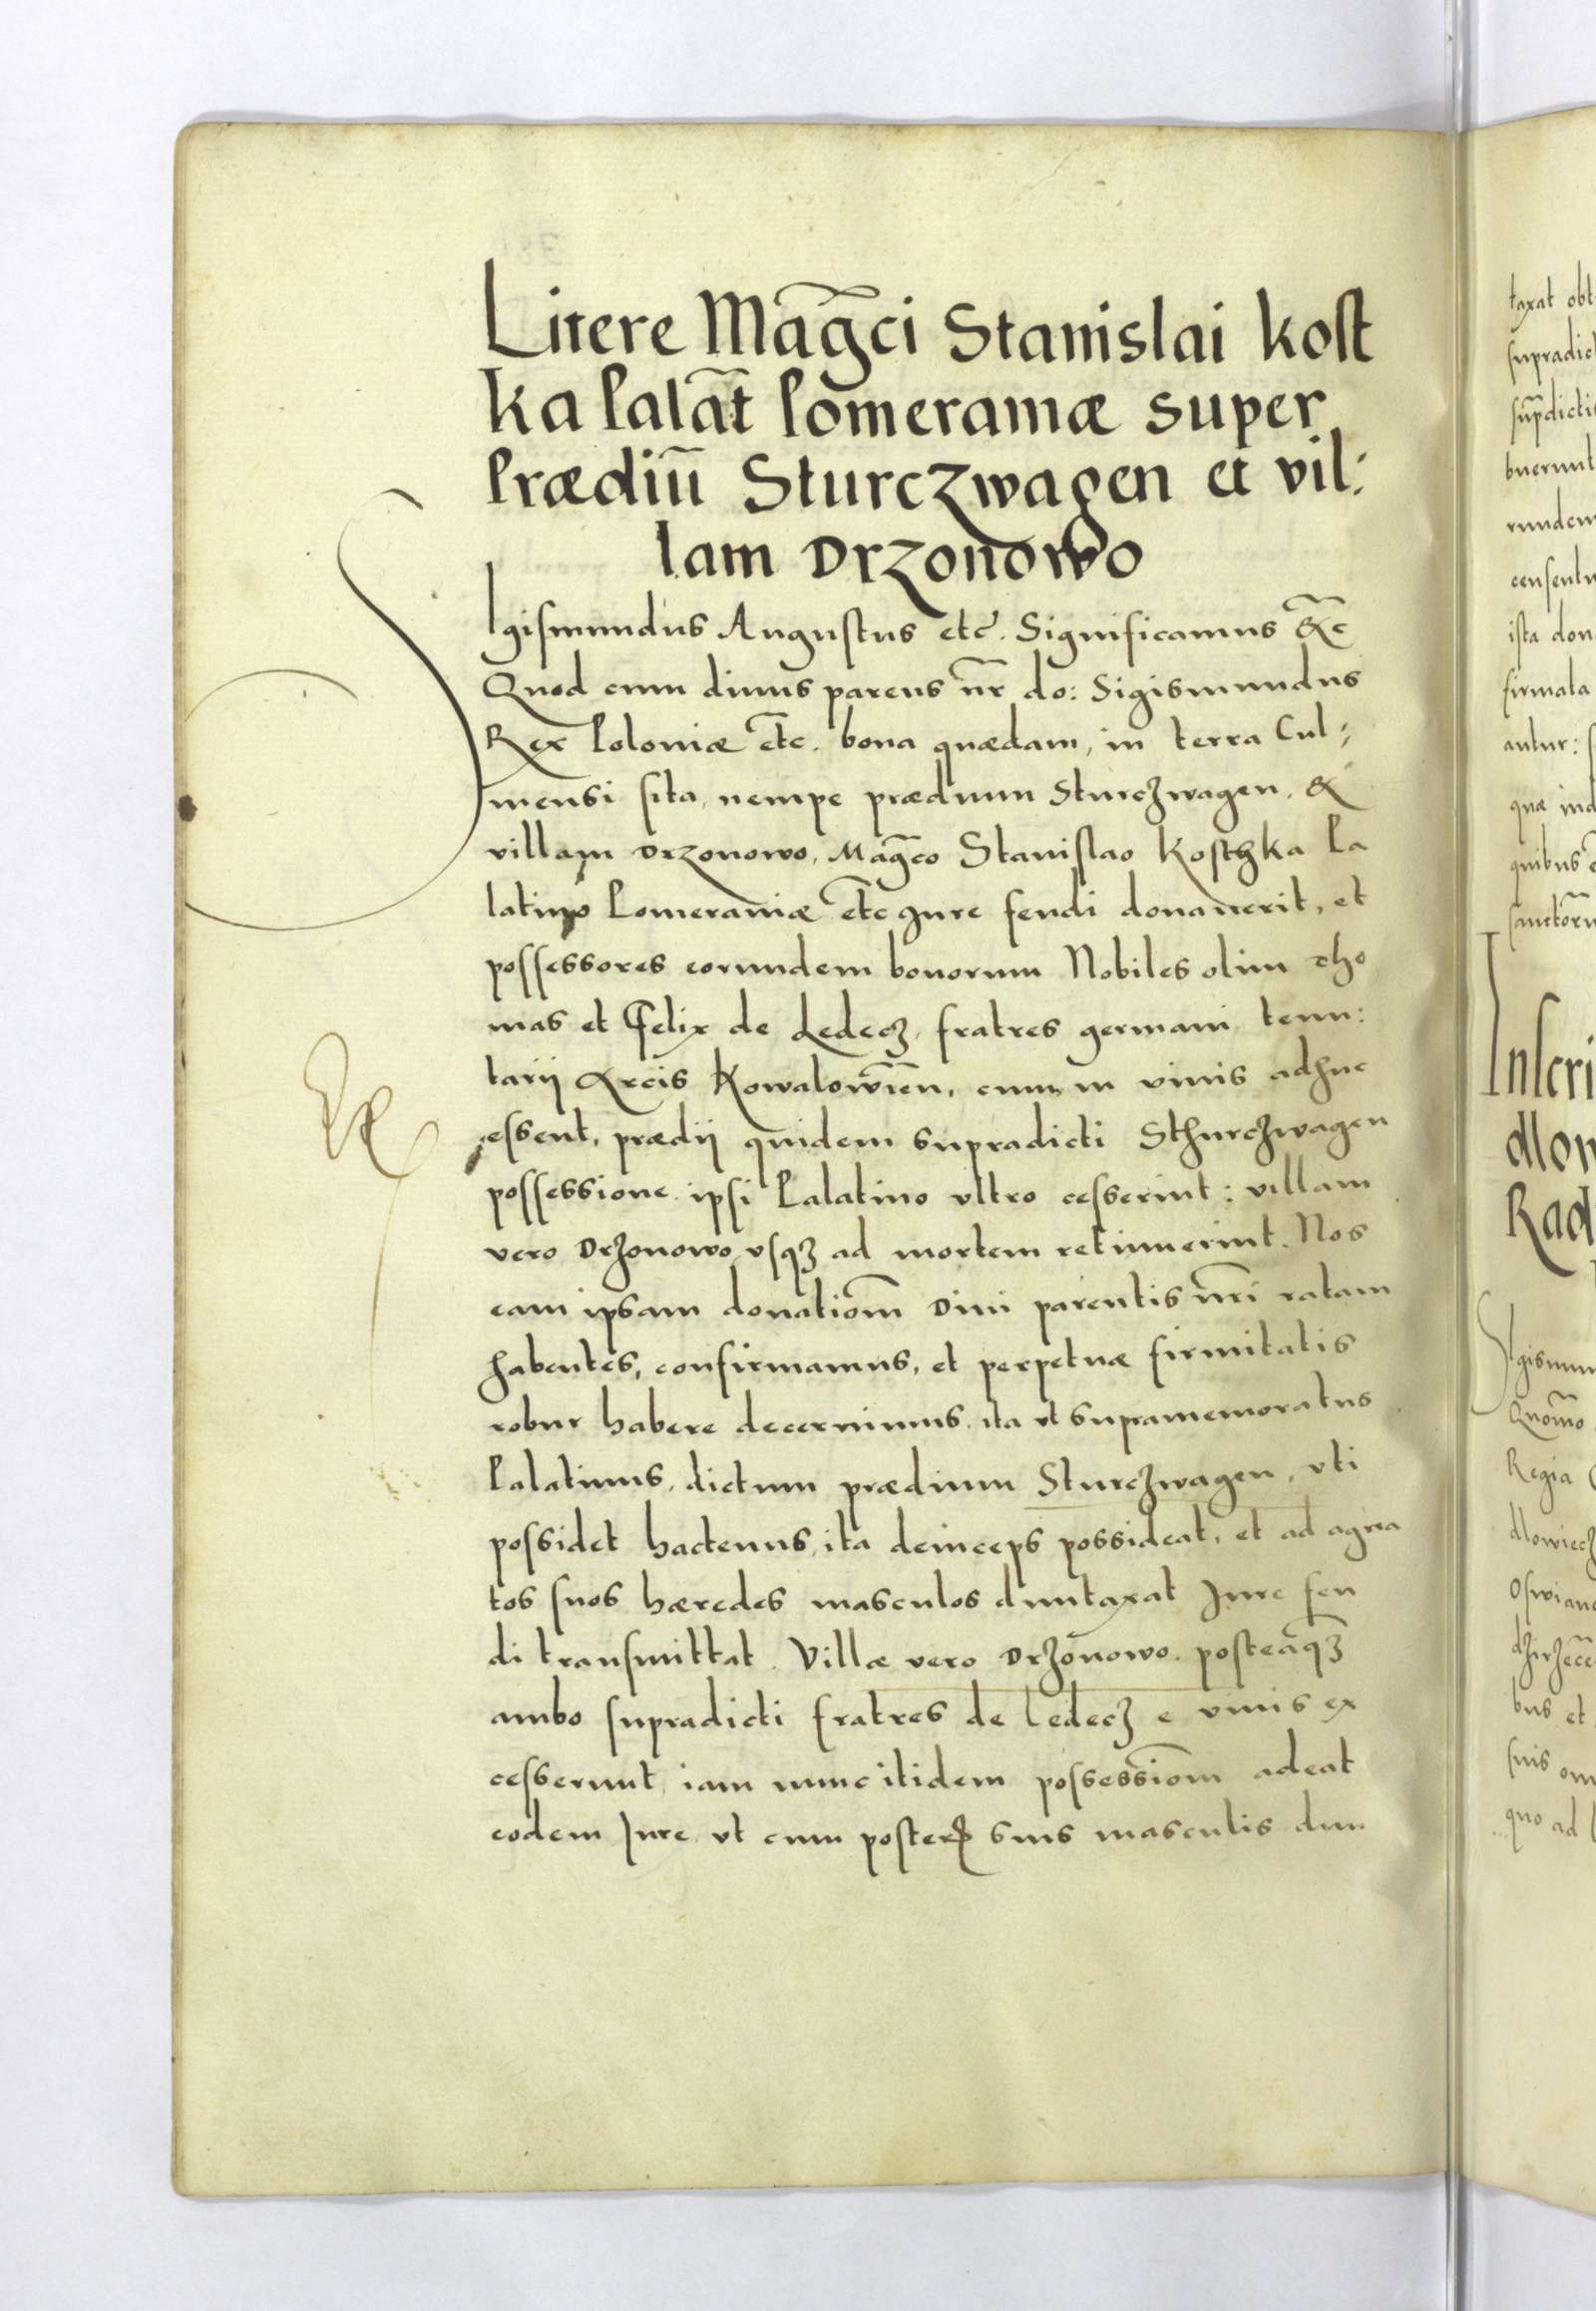 Litere Mag̃ci Stanislai Kost
ka Palat̃ Pomeraniæ super
Prædiũ Sturczwagen et vil:
lam Drzonowo
SIgismundus Augustus etc̃. Significamus &c̃
Quod cum diuus parens nr̃ do: Sigismundus
Rex Poloniæ etc̃. bona quædam, in terra Cul:
mensi sita, nempe prædium Sturczwagen, &
villam Drzonowo, Mag̃co Stanislao Kosthka Pa
latino Pomeraniæ etc̃ Jure feudi donauerit, et
possessores eorundem bonorum Nobiles olim Tho
mas et Felix de Ledecz, fratres germani tenu:
tarij Arcis Kowalowien̄, cum in viuis adhuc
essent, prædij quidem supradicti Sthurczwagen
possessione ipsi Palatino vltro cesserint: villam
vero Drzonowo vsqꝫ ad mortem retinuerint. Nos
eam ipsam donatiom̃ Diui parentis nr̃i ratam
habentes, confirmamus, et perpetuæ firmitatis
robur habere decernimus, ita vt supramemoratus
Palatinus, dictum prædium Sturczwagen, vti
possidet hactenus, ita deinceps possideat, et ad agna
tos suos hæredes masculos duntaxat Jure feu
di transmittat. Villæ vero Drzonowo. posteaq̃ꝫ
ambo supradicti fratres de Ledecz e viuis ex
cesserunt, iam nunc itidem possessiom̃ adeat
eodem Jure vt cum posterꝭ suis masculis dun
taxat
supradict
sup̃dictis
buerunt
rundem
censentu
ista don
firmata
antur:
quæ ind
quibus
sanctor̃u
Inscri
dlow
Rad
SIgismun
Quom̃o
Regia
dlowiecz
Oswianc
bus et
suis om
quo ad